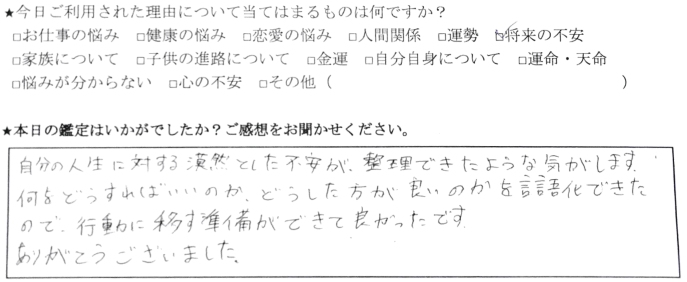 ★今日ご利用された理由について当てはまるものは何ですか？
□お仕事の悩み □健康の悩み □恋愛の悩み □人間関係 □運勢 ☑将来の不安
□家族について □子供の進路について □金運 □自分自身について □運命・天命
□悩みが分からない □心の不安 □その他（ ）
★本日の鑑定はいかがでしたか？ご感想をお聞かせください。
自分の人生に対する漠然とした不安が、整理できたような気がします。
何をどうすればいいのか、どうした方が良いのかを言語化できた
ので、行動に移す準備ができて良かったです。
ありがとうございました。